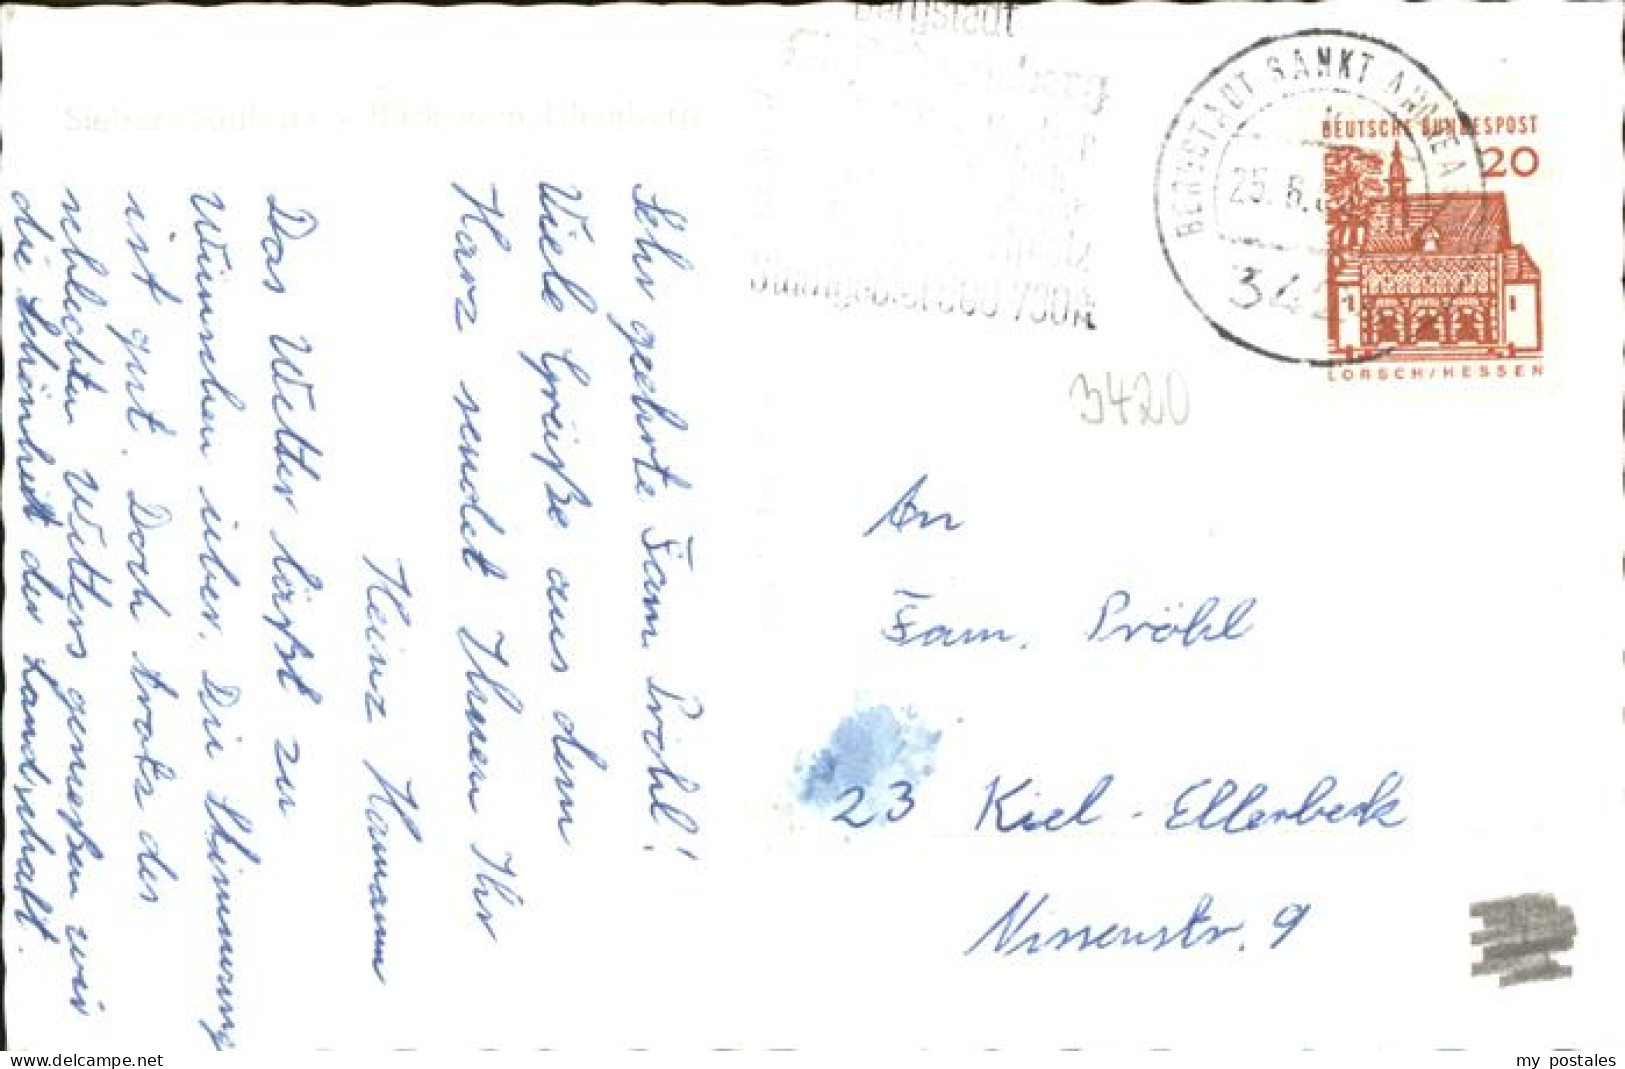 Bergstadt
BERGSTADT SANKT ANDREAS
25.6.
342
DEUTSCHE BUNDESPOST
20
LORSCH/HESSEN
3420
Sehr geehrte Fam Pröhl!
Viele Grüße aus dem
Harz sendet Ihnen Ihr
Heinz Hamann
Das Wetter läßt zu
Wünschen über. Die Stimmung
ist gut. Doch trotz des
schlechten Wetters genießen wir
die Schönheit der Landschaft.
An
Fam. Pröhl
23 Kiel-Ellerbeck
Nissenstr. 9
my postales
delcampe.net